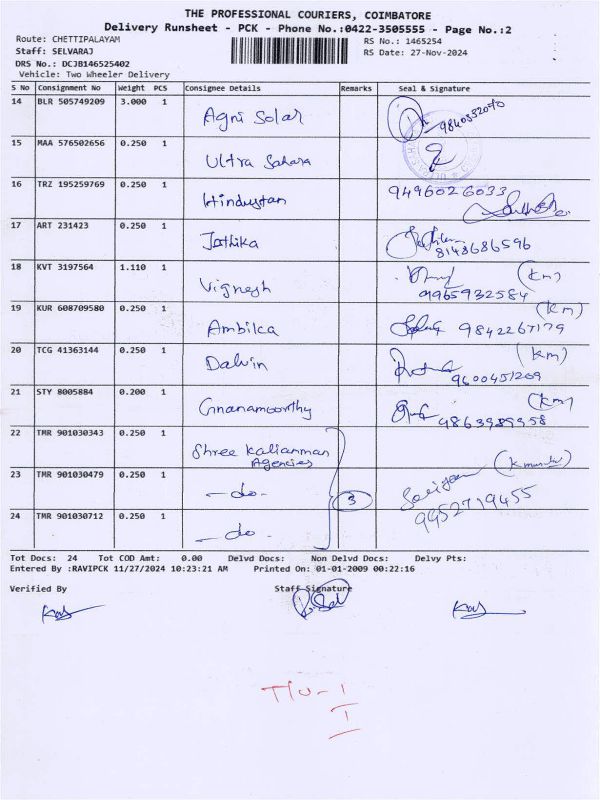 THE PROFESSIONAL COURIERS, COIMBATORE
Delivery Runsheet - PCK - Phone No.:0422-3505555 - Page No.:2
Route: CHETTIPALAYAM RS No.: 1465254
Staff: SELVARAJ RS Date: 27-Nov-2024
DRS No.: DCJB146525402
Vehicle: Two Wheeler Delivery
S No Consignment No Weight PCS Consignee Details Remarks Seal & Signature
14 BLR 505749209 3.000 1 Agni Solar
15 MAA 576502656 0.250 1 Ultra Sahara
16 TRZ 195259769 0.250 1 Hindustan 9496026033
17 ART 231423 0.250 1 Jothika 8148686596
18 KVT 3197564 1.110 1 Vignesh (Km)
9965932584
19 KUR 608709580 0.250 1 Ambilca 9842267179 (Km)
20 TCG 41363144 0.250 1 Dalvin (Km)
9600451209
21 STY 8005884 0.200 1 Gnanamoorthy (Km)
9863989958
22 TMR 901030343 0.250 1 Shree Kalianman
Agencies
23 TMR 901030479 0.250 1 -do- 3 9452719455
24 TMR 901030712 0.250 1 -do-
Tot Docs: 24 Tot COD Amt: 0.00 Delvd Docs: Non Delvd Docs: Delvy Pts:
Entered By :RAVIPCK 11/27/2024 10:23:21 AM Printed On: 01-01-2009 00:22:16
Verified By Staff Signature